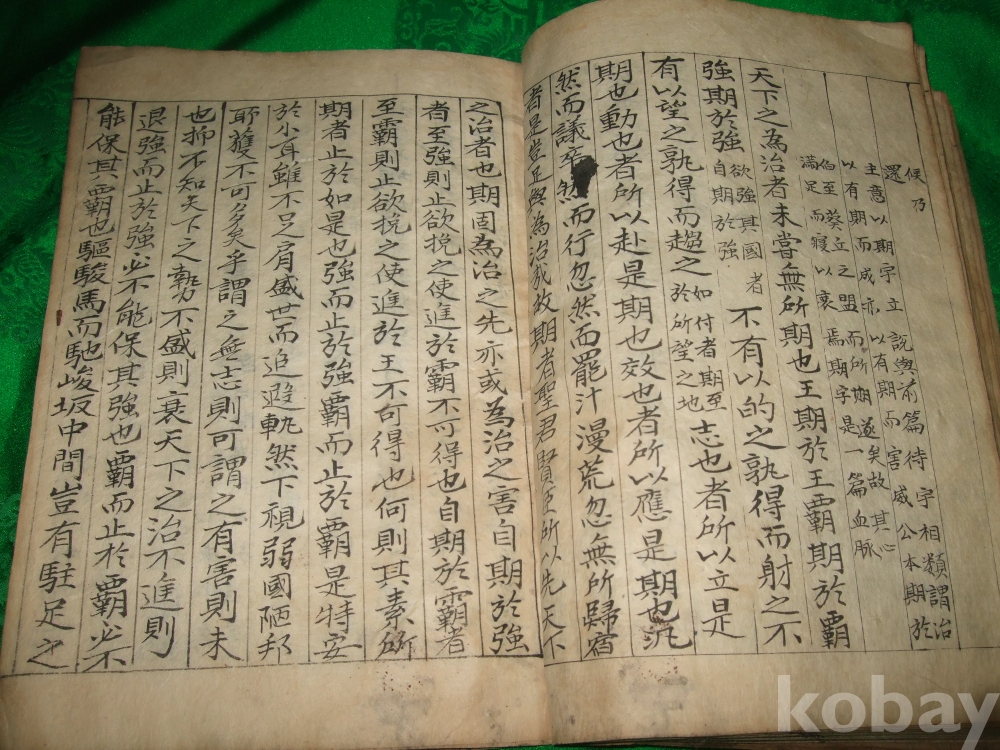 侯乃
還
主意以期字立說與前篇待字相類謂治
以有期而成亦以有期而害威公本期於
伯至葵丘之盟而所期遂矣故其心
滿足而寢以衰焉期字是一篇血脉
天下之為治者未嘗無所期也王期於王霸期於霸
強期於強欲強其國者自期於強不有以的之孰得而射之不
有以望之孰得而趨之如付者期至於所望之地志也者所以立是
期也動也者所以赴是期也效也者所以應是期也汎
然而議卒然而行忽然而罷汗漫荒忽無所歸宿
者是豈足與為治哉故期者聖君賢臣所以先天下
之治者也期固為治之先亦或為治之害自期於強
者至強則止欲挽之使進於霸不可得也自期於霸者
至霸則止欲挽之使進於王不可得也何則其素所
期者止於如是也強而止於強霸而止於霸是特安
於小耳雖不足肩盛世而追遐軌然下視弱國陋邦
所獲不可多矣乎謂之無志則可謂之有害則未
也抑不知天下之勢不盛則衰天下之治不進則
退強而止於強必不能保其強也霸而止於霸必不
能保其霸也驅駿馬而馳峻坂中間豈有駐足之
kobay